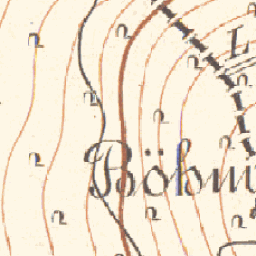 L
Böhm